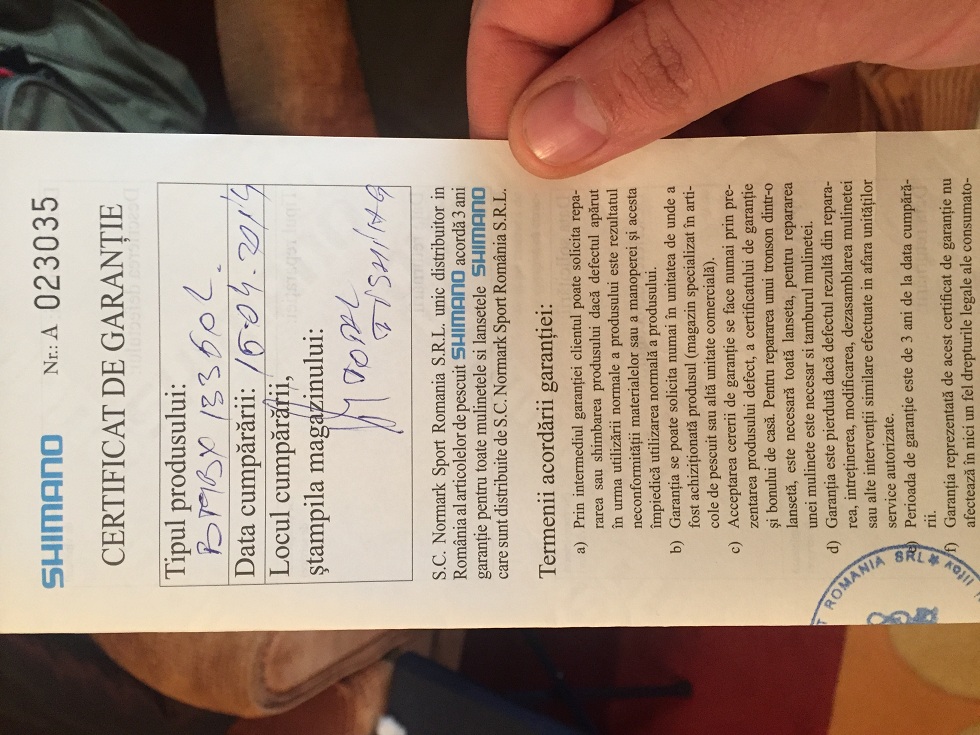 SHIMANO
Nr.: A 023035
CERTIFICAT DE GARANȚIE
Tipul produsului:
BTRBX 13350L.
Data cumpărării: 15.04.2014
Locul cumpărării,
ștampila magazinului:
S.C. Normark Sport Romania S.R.L. unic distribuitor in
România al articolelor de pescuit SHIMANO acordă 3 ani
garanție pentru toate mulinetele si lansetele SHIMANO
care sunt distribuite de S.C. Normark Sport România S.R.L.
Termenii acordării garanției:
a) Prin intermediul garanției clientul poate solicita repa-
rarea sau shimbarea produsului dacă defectul apărut
în urma utilizării normale a produsului este rezultatul
neconformității materialelor sau a manoperei și acesta
împiedică utilizarea normală a produsului.
b) Garanția se poate solicita numai în unitatea de unde a
fost achiziționată produsul (magazin specializat în arti-
cole de pescuit sau altă unitate comercială).
c) Acceptarea cererii de garanție se face numai prin pre-
zentarea produsului defect, a certificatului de garanție
și bonului de casă. Pentru repararea unui tronson dintr-o
lansetă, este necesară toată lanseta, pentru repararea
unei mulinete este necesar si tamburul mulinetei.
d) Garanția este pierdută dacă defectul rezultă din repara-
rea, intreținerea, modificarea, dezasamblarea mulinetei
sau alte intervenții similare efectuate in afara unităților
service autorizate.
e) Perioada de garanție este de 3 ani de la data cumpără-
rii.
f) Garanția reprezentată de acest certificat de garanție nu
afectează în nici un fel drepturile legale ale consumato-
ROMANIA SRL